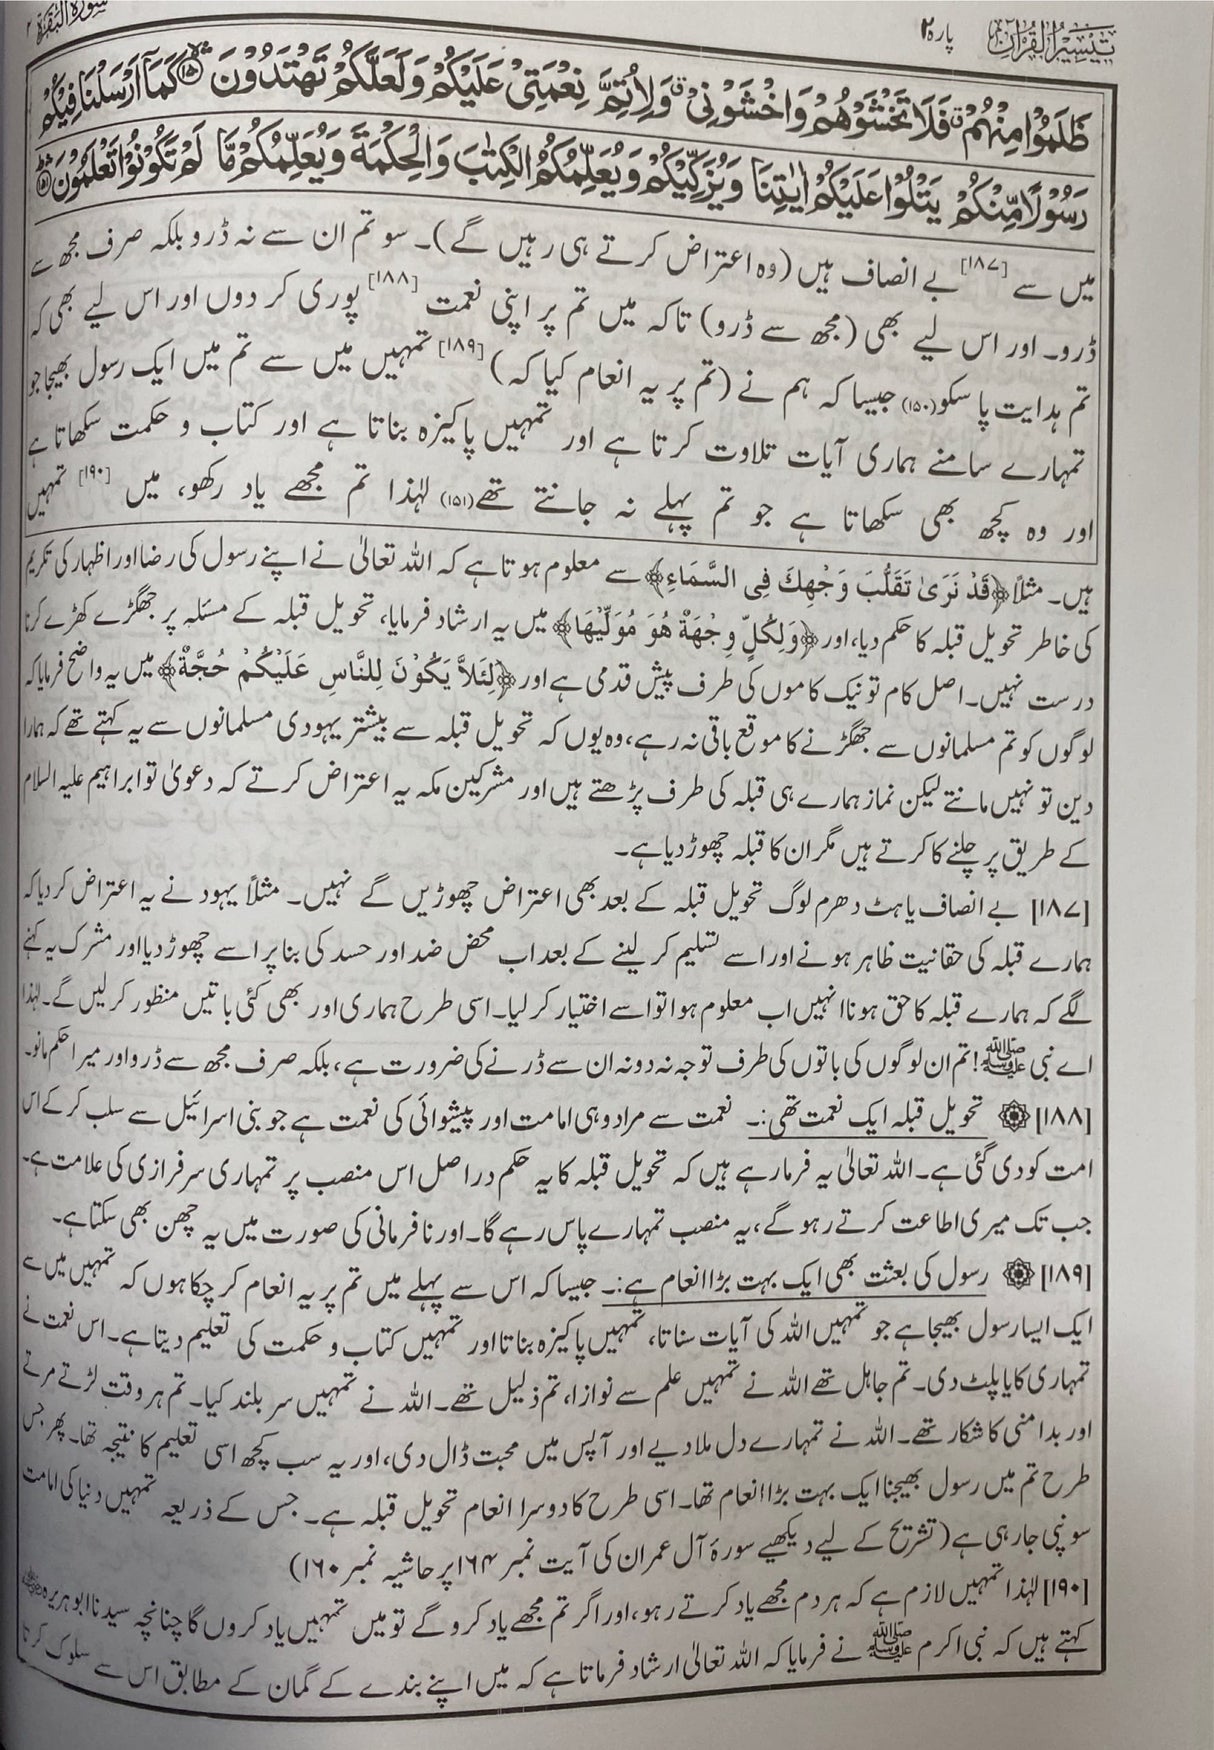 تیسیر القرآن پارہ ۲ سورۃ البقرۃ ۲
ظَلَمُوْا مِنْهُمْ ۗ فَلَا تَخْشَوْهُمْ وَاخْشَوْنِيْ ۗ وَلِاُتِمَّ نِعْمَتِيْ عَلَيْكُمْ وَلَعَلَّكُمْ تَهْتَدُوْنَ ۝۱۵۰ كَمَآ اَرْسَلْنَا فِيْكُمْ
رَسُوْلًا مِّنْكُمْ يَتْلُوْا عَلَيْكُمْ اٰيٰتِنَا وَيُزَكِّيْكُمْ وَيُعَلِّمُكُمُ الْكِتٰبَ وَالْحِكْمَةَ وَيُعَلِّمُكُمْ مَّا لَمْ تَكُوْنُوْا تَعْلَمُوْنَ ۝۱۵۱
میں سے [۱۸۷] بے انصاف ہیں (وہ اعتراض کرتے ہی رہیں گے)۔ سو تم ان سے نہ ڈرو بلکہ صرف مجھ سے
ڈرو۔ اور اس لیے بھی (مجھ سے ڈرو) تاکہ میں تم پر اپنی نعمت [۱۸۸] پوری کر دوں اور اس لیے بھی کہ
تم ہدایت پا سکو (۱۵۰) جیسا کہ ہم نے (تم پر یہ انعام کیا کہ) [۱۸۹] تمہیں میں سے تم میں ایک رسول بھیجا جو
تمہارے سامنے ہماری آیات تلاوت کرتا ہے اور تمہیں پاکیزہ بناتا ہے اور کتاب و حکمت سکھاتا ہے
اور وہ کچھ بھی سکھاتا ہے جو تم پہلے نہ جانتے تھے (۱۵۱) لہٰذا تم مجھے یاد رکھو، میں [۱۹۰] تمہیں
ہیں۔ مثلاً ﴿قَدْ نَرَىٰ تَقَلُّبَ وَجْهِكَ فِى السَّمَاءِ﴾ سے معلوم ہوتا ہے کہ اللہ تعالیٰ نے اپنے رسول کی رضا اور اظہار کی تکریم
کی خاطر تحویل قبلہ کا حکم دیا، اور ﴿وَلِكُلٍّ وِجْهَةٌ هُوَ مُوَلِّيْهَا﴾ میں یہ ارشاد فرمایا، تحویل قبلہ کے مسئلہ پر جھگڑے کھڑے کرنا
درست نہیں۔ اصل کام تو نیک کاموں کی طرف پیش قدمی ہے اور ﴿لِئَلاَّ يَكُوْنَ لِلنَّاسِ عَلَيْكُمْ حُجَّةٌ﴾ میں یہ واضح فرمایا کہ
لوگوں کو تم مسلمانوں سے جھگڑنے کا موقع باقی نہ رہے، وہ یوں کہ تحویل قبلہ سے بیشتر یہودی مسلمانوں سے یہ کہتے تھے کہ ہمارا
دین تو نہیں مانتے لیکن نماز ہمارے ہی قبلہ کی طرف پڑھتے ہیں اور مشرکین مکہ یہ اعتراض کرتے کہ دعویٰ تو ابراہیم علیہ السلام
کے طریق پر چلنے کا کرتے ہیں مگر ان کا قبلہ چھوڑ دیا ہے۔
[۱۸۷] بے انصاف یا ہٹ دھرم لوگ تحویل قبلہ کے بعد بھی اعتراض چھوڑیں گے نہیں۔ مثلاً یہود نے یہ اعتراض کر دیا کہ
ہمارے قبلہ کی حقانیت ظاہر ہونے اور اسے تسلیم کر لینے کے بعد اب محض ضد اور حسد کی بنا پر اسے چھوڑ دیا اور مشرک یہ کہنے
لگے کہ ہمارے قبلہ کا حق ہونا انہیں اب معلوم ہوا تو اسے اختیار کر لیا۔ اسی طرح ہماری اور بھی کئی باتیں منظور کر لیں گے۔ لہٰذا
اے نبی ﷺ! تم ان لوگوں کی باتوں کی طرف توجہ نہ دو نہ ان سے ڈرنے کی ضرورت ہے، بلکہ صرف مجھ سے ڈرو اور میرا حکم مانو۔
[۱۸۸] تحویل قبلہ ایک نعمت تھی:۔ نعمت سے مراد وہی امامت اور پیشوائی کی نعمت ہے جو بنی اسرائیل سے سلب کر کے اس
امت کو دی گئی ہے۔ اللہ تعالیٰ یہ فرما رہے ہیں کہ تحویل قبلہ کا یہ حکم دراصل اس منصب پر تمہاری سرفرازی کی علامت ہے۔
جب تک میری اطاعت کرتے رہو گے، یہ منصب تمہارے پاس رہے گا۔ اور نافرمانی کی صورت میں یہ چھن بھی سکتا ہے۔
[۱۸۹] رسول کی بعثت بھی ایک بہت بڑا انعام ہے:۔ جیسا کہ اس سے پہلے میں تم پر یہ انعام کر چکا ہوں کہ تمہیں میں سے
ایک ایسا رسول بھیجا ہے جو تمہیں اللہ کی آیات سناتا، تمہیں پاکیزہ بناتا اور تمہیں کتاب و حکمت کی تعلیم دیتا ہے۔ اس نعمت نے
تمہاری کایا پلٹ دی۔ تم جاہل تھے اللہ نے تمہیں علم سے نوازا، تم ذلیل تھے۔ اللہ نے تمہیں سر بلند کیا۔ تم ہر وقت لڑتے مرتے
اور بدامنی کا شکار تھے۔ اللہ نے تمہارے دل ملا دیے اور آپس میں محبت ڈال دی، اور یہ سب کچھ اسی تعلیم کا نتیجہ تھا۔ پھر جس
طرح تم میں رسول بھیجنا ایک بہت بڑا انعام تھا۔ اسی طرح کا دوسرا انعام تحویل قبلہ ہے۔ جس کے ذریعہ تمہیں دنیا کی امامت
سونپی جا رہی ہے (تشریح کے لیے دیکھیے سورۂ آل عمران کی آیت نمبر ۱۶۴ پر حاشیہ نمبر ۱۶۰)
[۱۹۰] لہٰذا تمہیں لازم ہے کہ ہر دم مجھے یاد کرتے رہو، اور اگر تم مجھے یاد کرو گے تو میں تمہیں یاد کروں گا چنانچہ سیدنا ابو ہریرہ ؓ
کہتے ہیں کہ نبی اکرم ﷺ نے فرمایا کہ اللہ تعالیٰ ارشاد فرماتا ہے کہ میں اپنے بندے کے گمان کے مطابق اس سے سلوک کرتا